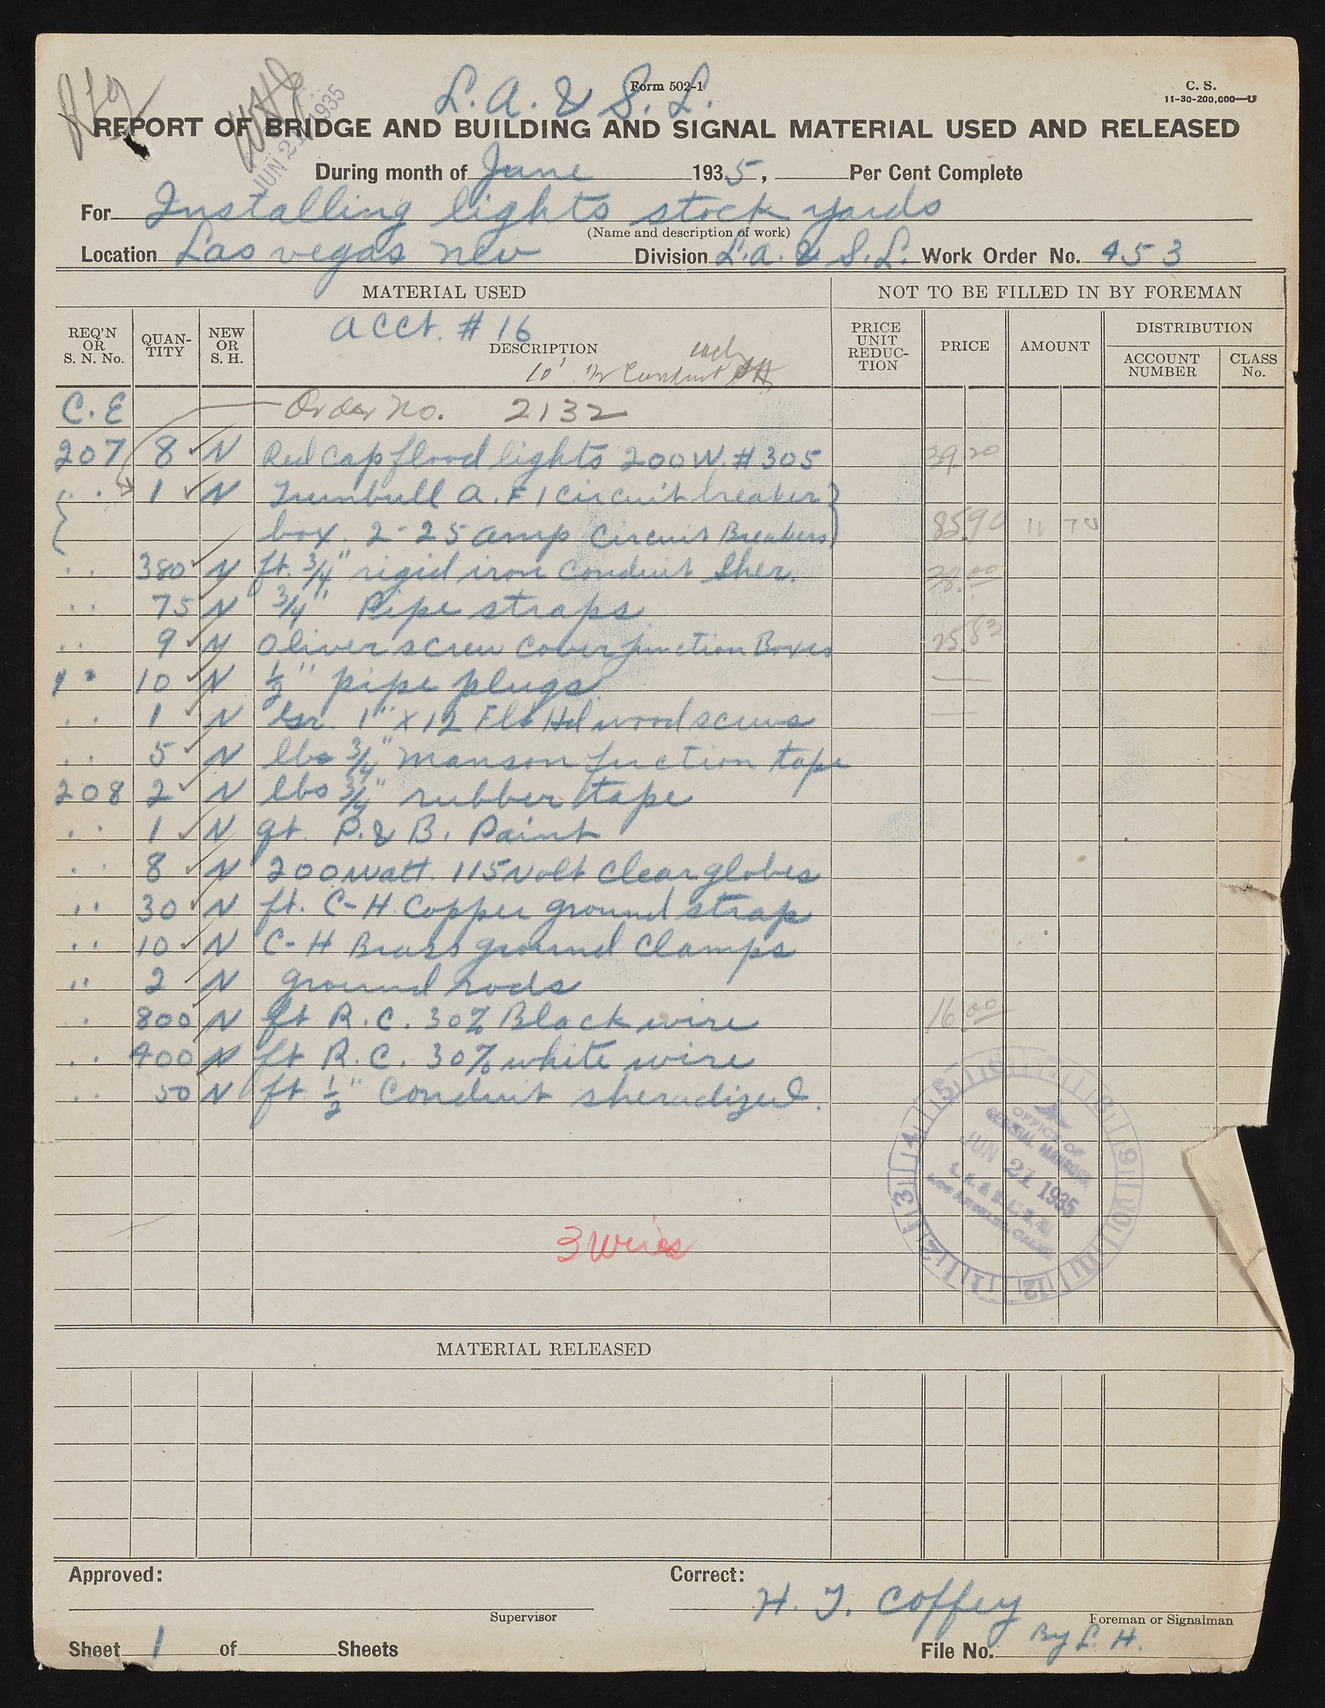 L. A. & S. L.
Form 502-1
C. S.
11-30-200,000—U
JUN 21 1935
REPORT OF BRIDGE AND BUILDING AND SIGNAL MATERIAL USED AND RELEASED
During month of June 1935, Per Cent Complete
For Installing lights stock yards
(Name and description of work)
Location Las vegas nev Division L.A. & S.L. Work Order No. 453
MATERIAL USED NOT TO BE FILLED IN BY FOREMAN
REQ'N OR S. N. No. QUANTITY NEW OR S. H. Acct. # 16 DESCRIPTION PRICE UNIT REDUCTION PRICE AMOUNT DISTRIBUTION
ACCOUNT NUMBER CLASS No.
10' 1/2 Conduit
C.E Order No. 2132
207 8 N Red Cap flood lights 200 W. #305 39.20
" 1 N Trumbull A. F 1 Circuit breaker
box. 2-25 amp Circuit Breakers 8590 11 70
" 380 N ft. 3/4" rigid iron Conduit Sher. 38.00
" 75 N 3/4" Pipe straps
" 9 N Oliver screw cover junction Boxes 2583
" 10 N 1/2" pipe plugs —
" 1 N Gr. 1" x 12 Flt Hd wood screws —
" 5 N lbs 3/4" manson friction tape
208 2 N lbs 3/4" rubber tape
" 1 N qt. P. & B. Paint
" 8 N 200 watt. 115 volt Clear globes
" 30 N ft. C-H. Copper ground strap
" 10 N C-H Brass ground Clamps
" 2 N ground rods
" 800 N ft R.C. 30% Black wire 16.00
" 400 N ft R.C. 30% white wire
" 50 N ft 1/2" Conduit sheradized.
OFFICE OF
GENERAL MANAGER
JUN 21 1935
3 wires
MATERIAL RELEASED
Approved: Correct:
H. J. Coffey
Supervisor Foreman or Signalman
By L. H.
Sheet 1 of Sheets File No.